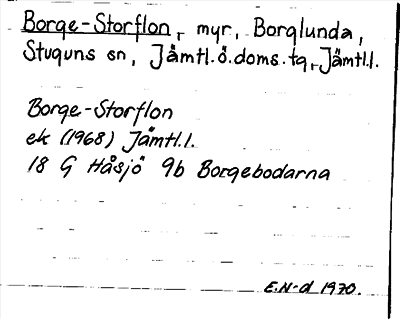 Borge-Storflon, myr, Borglunda,
Stuguns sn, Jämtl.ö.doms.tg, Jämtl.l.
Borge-Storflon
ek (1968) Jämtl.l.
18 G Håsjö 9b Borgebodarna
E.N-d 1970.